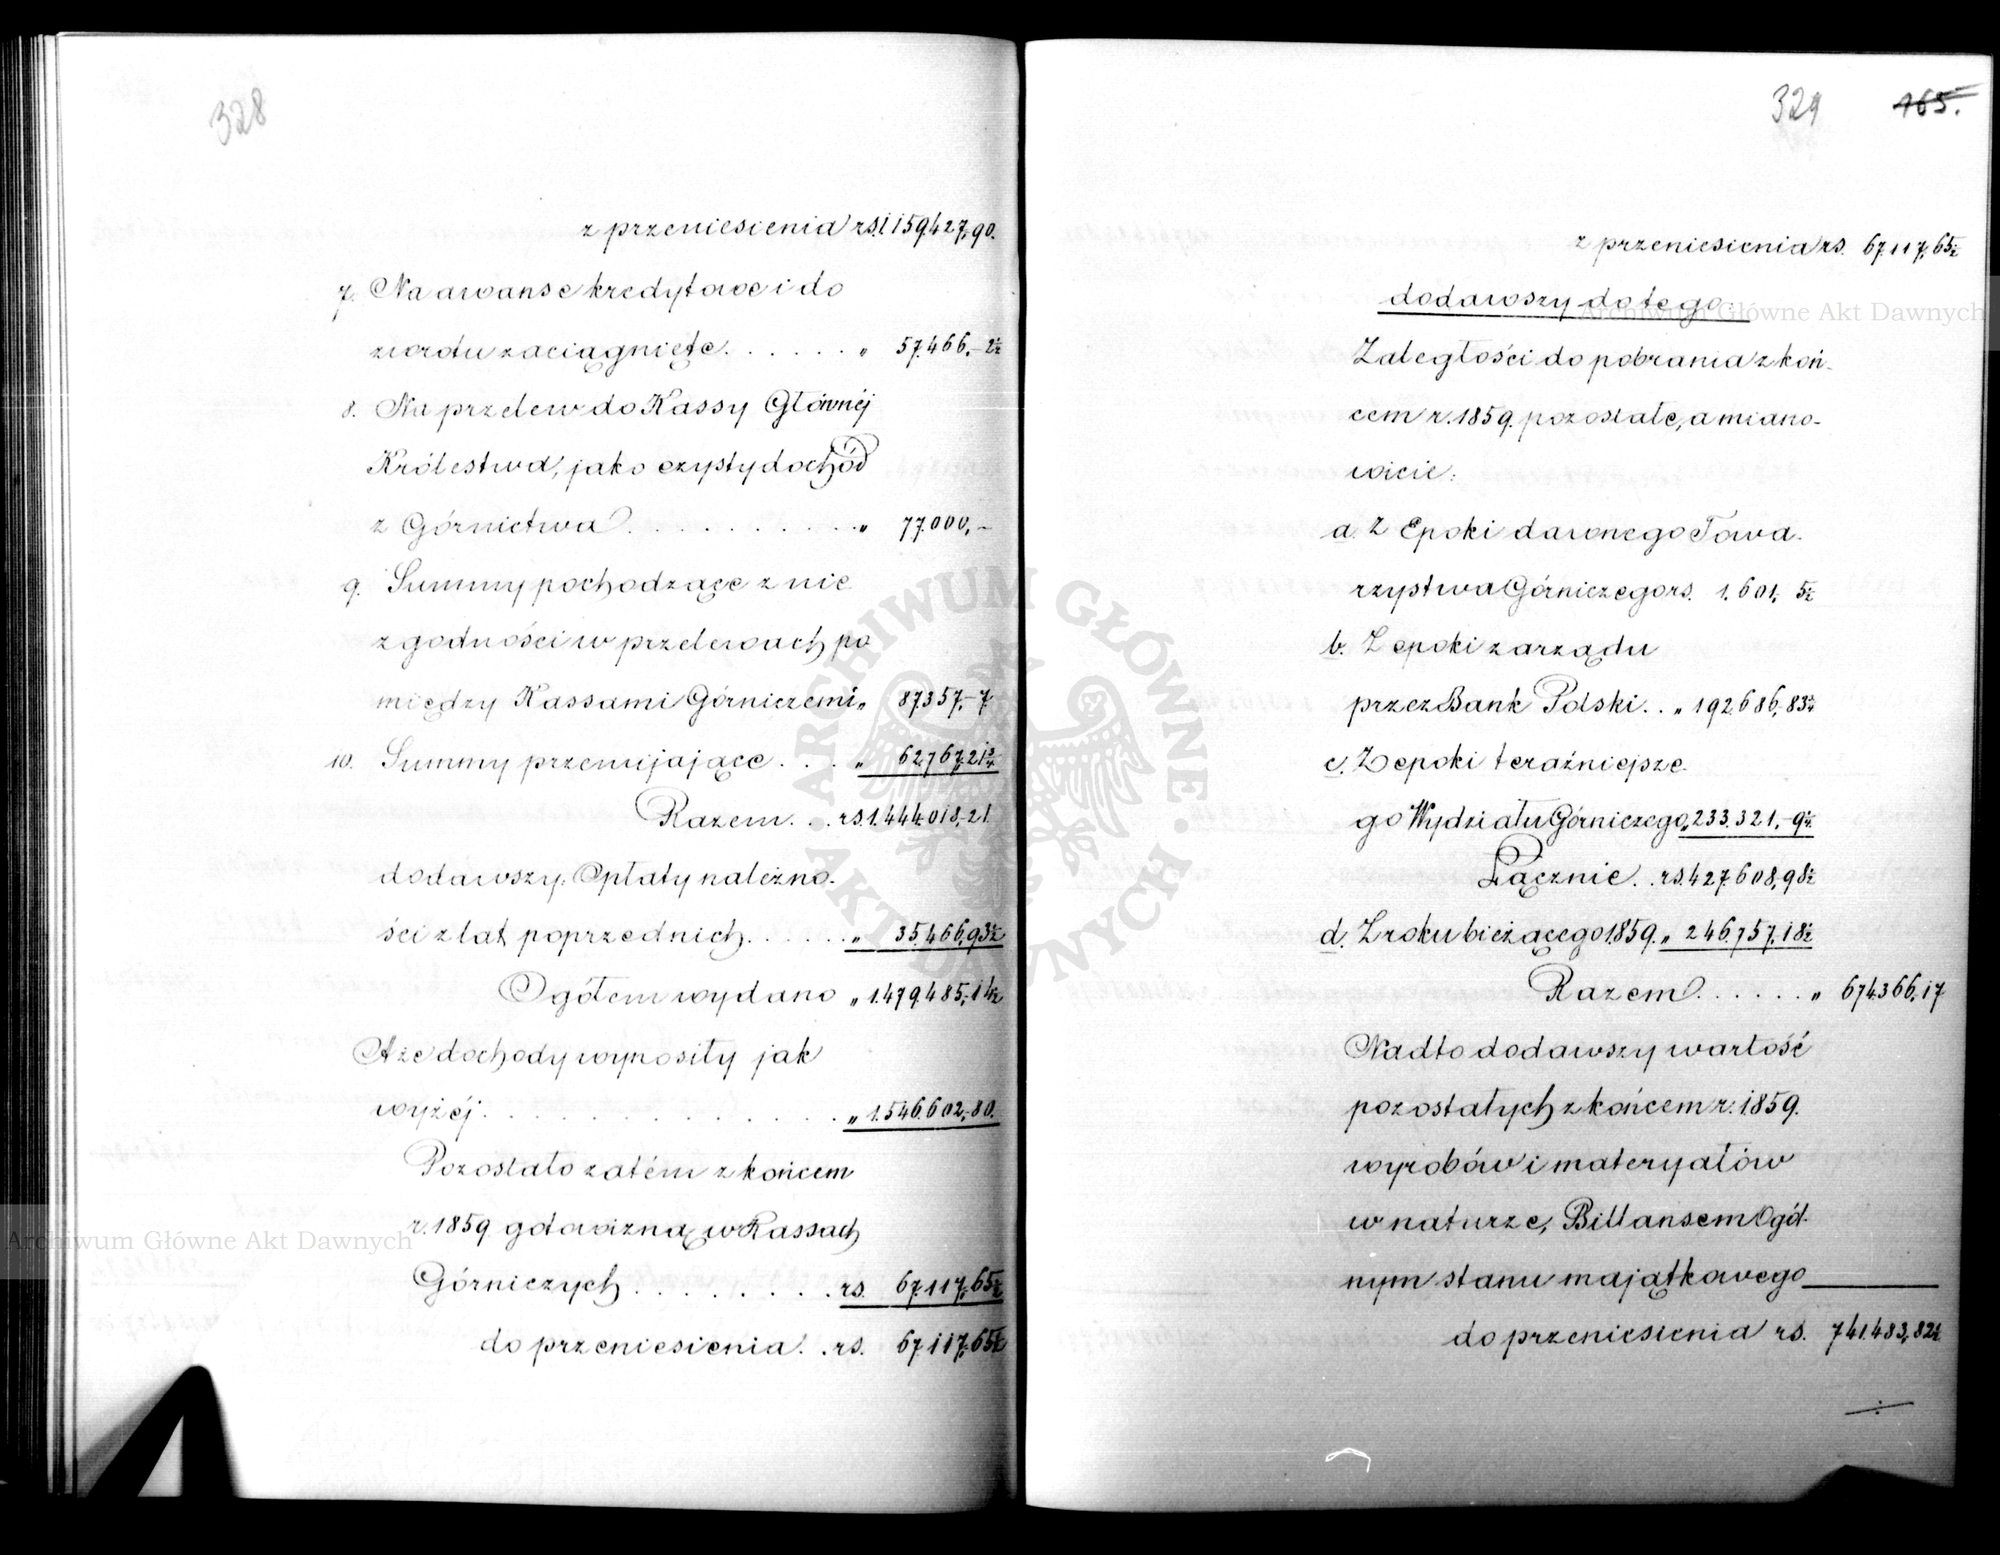 328
z przeniesienia rs. 1159.427,90.
7. Na awanse kredytowe i do
zwrotu zaciągnięte . . . . . . „ 57.466,-2½
8. Na przelew do Kassy Głównéj
Królestwa, jako czysty dochód
z Górnictwa . . . . . . . . . . „ 77.000,-
9. Summy pochodzące z nie
zgodności w przelewach po
między Kassami Górniczemi „ 87.357,-7
10. Summy przemijające . . . „ 62.767,21¾
Razem . . rs. 1.444.018,-21
dodawszy: Opłaty należno-
ści z lat poprzednich . . . . . „ 35.466,93½
Ogółem wydano „ 1.479.485,-14½
A że dochody wynosiły jak
wyżéj . . . . . . . . . . . . . „ 1.546.602,-80.
Pozostało zatém z końcem
r. 1859 gotowizną w Kassach
Górniczych . . . . . . . . rs. 67.117,65½
do przeniesienia . . rs. 67.117,65½
329 165.
z przeniesienia rs. 67.117,65½
dodawszy do tego:
Zaległości do pobrania z koń-
cem r. 1859. pozostałe, a miano-
wicie:
a. Z Epoki dawnego Towa-
rzystwa Górniczego rs. 1.601, 5½
b. Z epoki zarządu
przez Bank Polski . . „ 192.686,83¾
c. Z epoki teraźniejsze-
go Wydziału Górniczego „ 233.321,-9¼
Łącznie . . rs. 427.608,98½
d. Z roku bieżącego 1859. „ 246.757,18½
Razem . . . . . . „ 674.366,17
Nadto dodawszy wartość
pozostałych z końcem r. 1859.
wyrobów i materyałów
w naturze, Billansem Ogól-
nym stanu majątkowego
do przeniesienia rs. 741.483,82½
Archiwum Główne Akt Dawnych
Archiwum Główne Akt Dawnych
ARCHIWUM GŁÓWNE AKT DAWNYCH